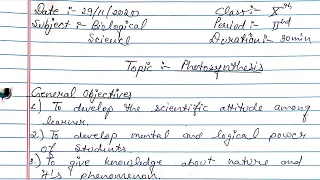 Date :- 29/11/2020 Class:- Xth
Subject :- Biological Period :- IInd
Science Duration:- 30min
Topic :- Photosynthesis
General Objectives
1.) To develop the scientific attitude among
learner.
2.) To develop mental and logical power
of students.
3.) To give knowledge about nature and
it's phenomenon.